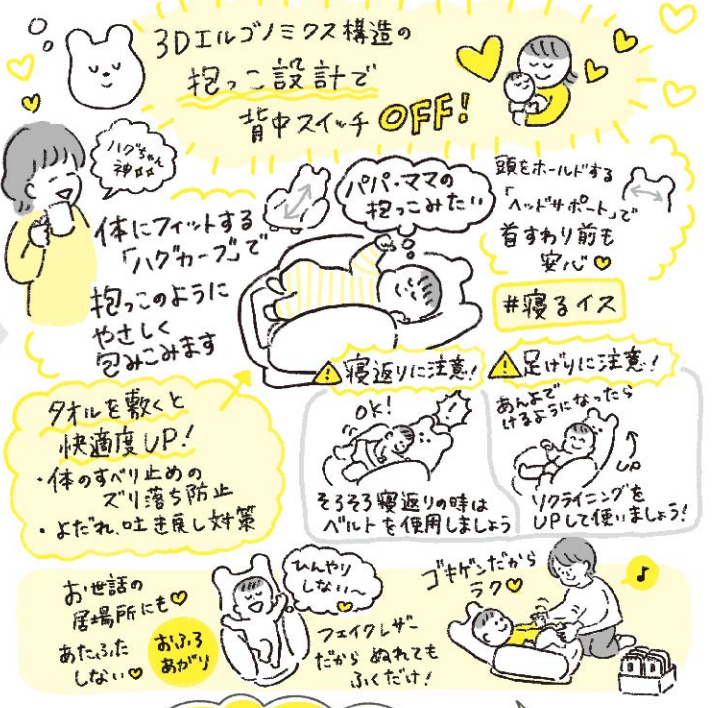 3Dエルゴノミクス構造の
抱っこ設計で
背中スイッチ OFF!
ハグちゃん
神☆☆
体にフィットする
「ハグカーブ」で
抱っこのように
やさしく
包みこみます
パパ・ママの
抱っこみたい
頭をホールドする
「ヘッドサポート」で
首すわり前も
安心♡
#寝るイス
タオルを敷くと
快適度UP!
・体のすべり止めの
ズリ落ち防止
・よだれ、吐き戻し対策
寝返りに注意!
OK!
そろそろ寝返りの時は
ベルトを使用しましょう
足けりに注意!
あんよで
けるようになったら
UP
リクライニングを
UPして使いましょう!
お世話の
居場所にも♡
あたふた
しない♡
おふろ
あがり
ひんやり
しない〜
フェイクレザー
だから ぬれても
ふくだけ!
ゴキゲンだから
ラク♡